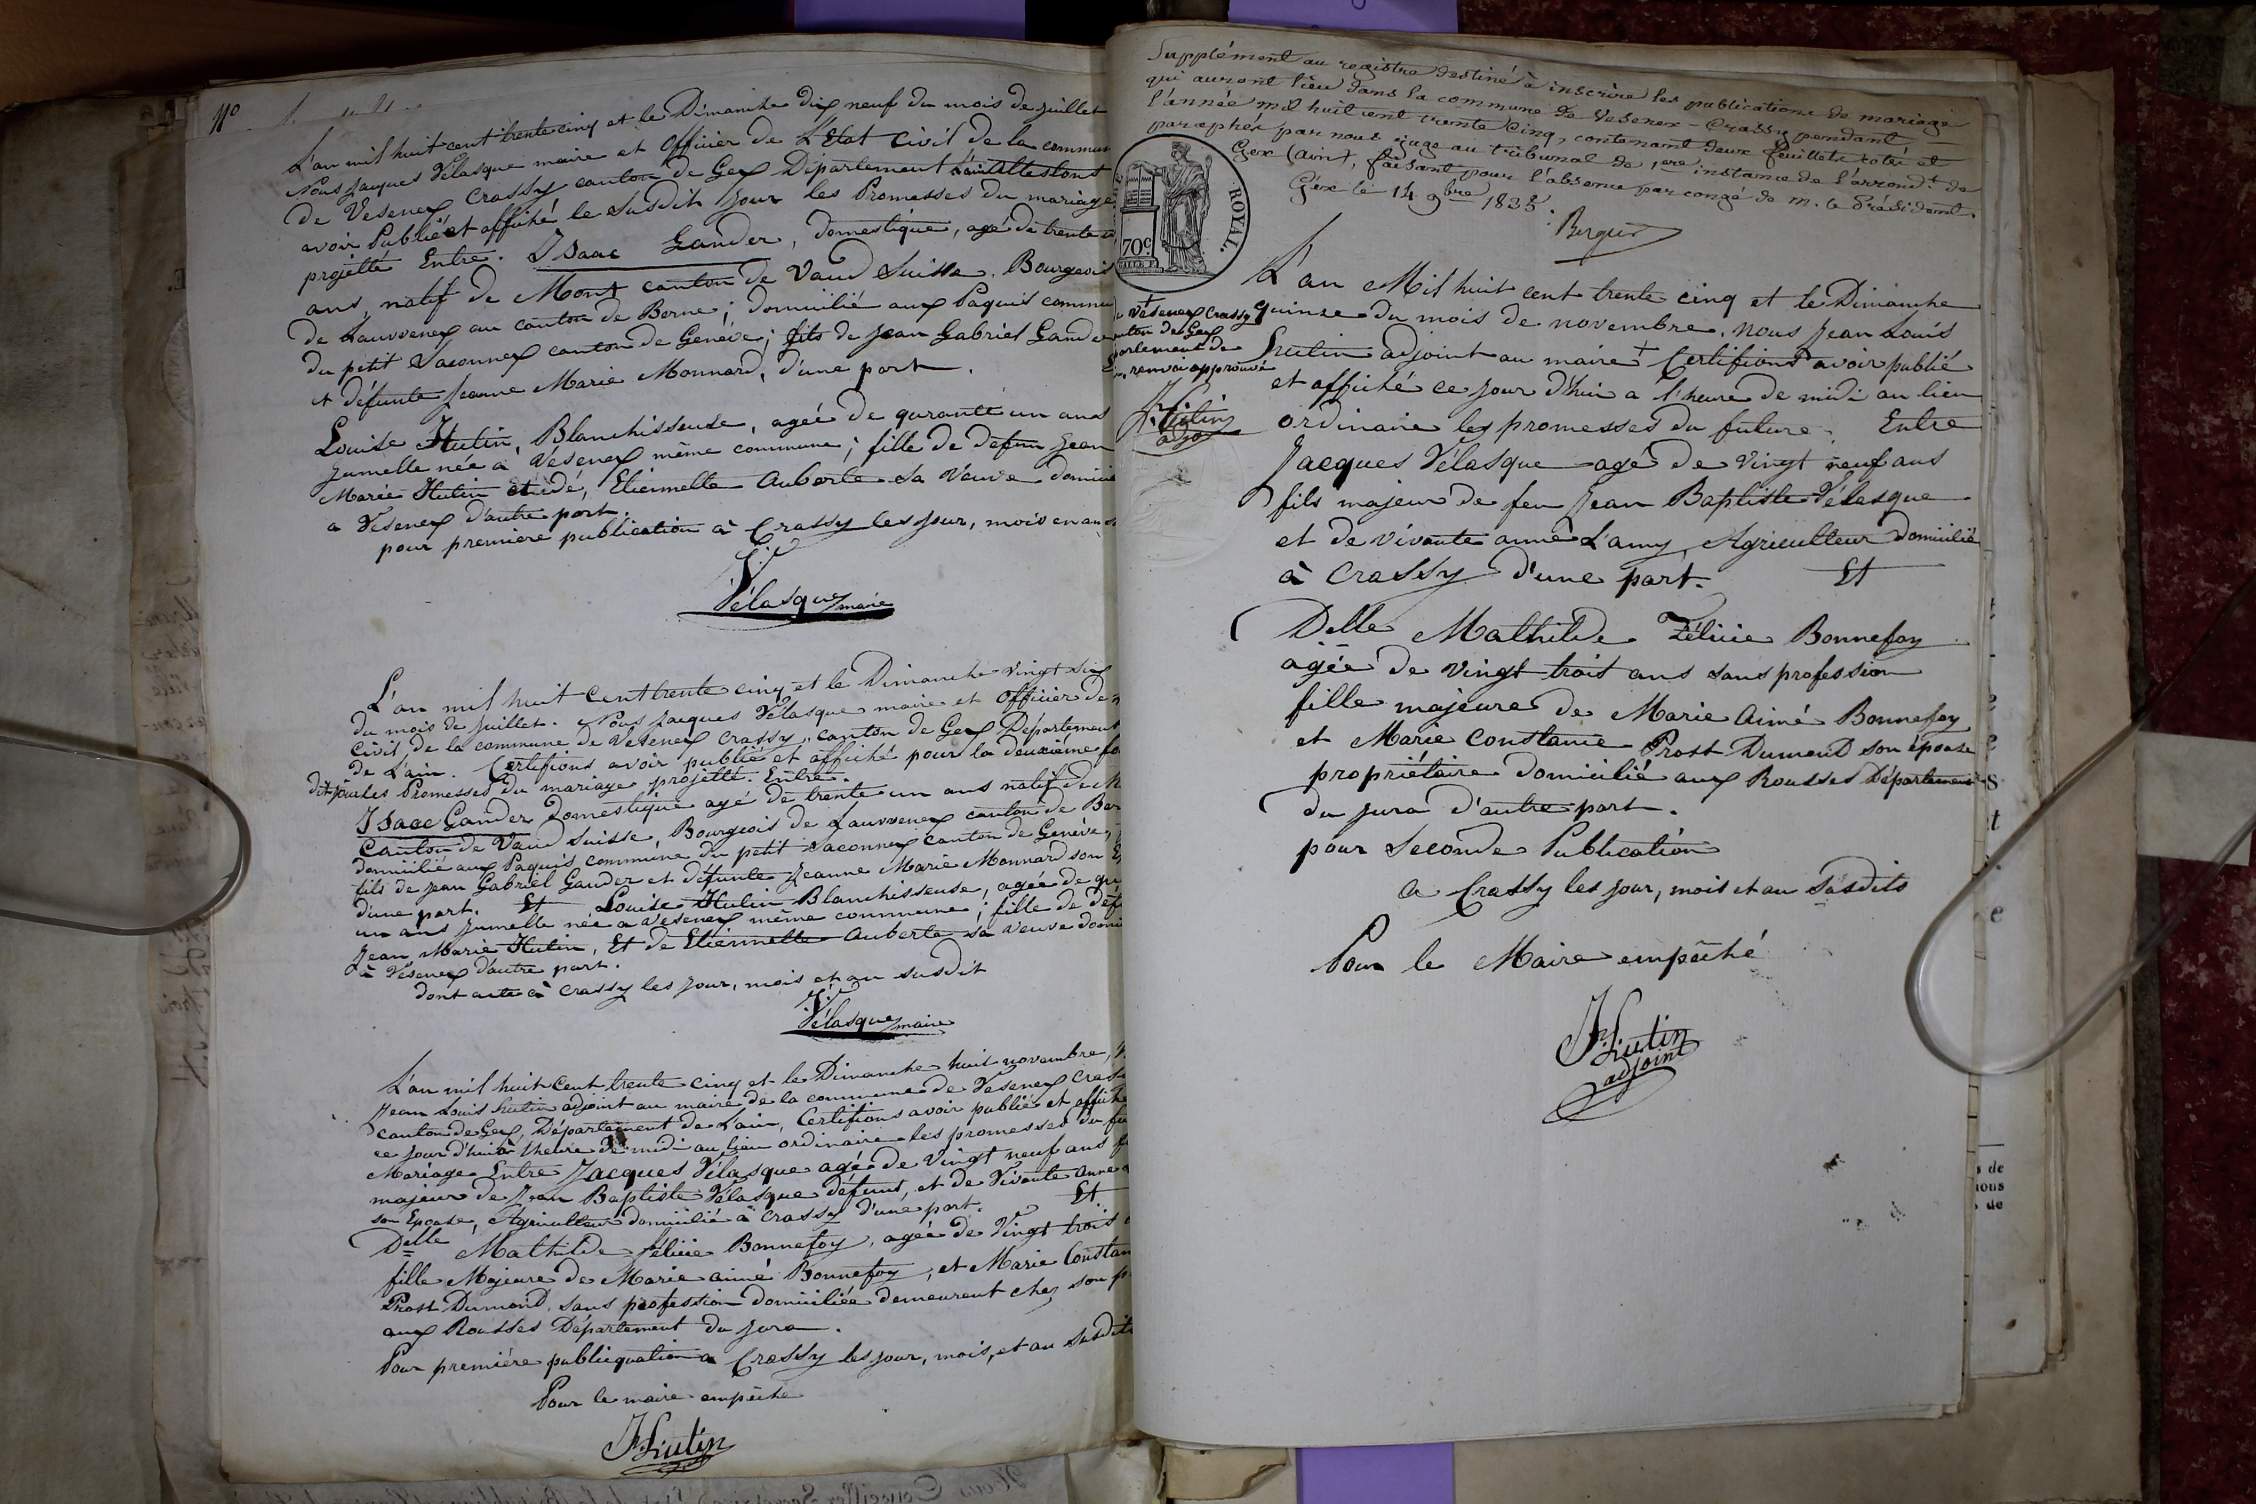 N°
L'an mil huit cent trente cinq et le Dimanche dix neuf du mois de juillet
Nous Jacques Vélasque maire et officier de L'Etat Civil de la commun
de Vesenex Crassy canton de Gex Département
avoir Publié et affiché le susdit jour les Promesses du mariage
projetté Entre. Isaac Gander, domestique, agé de trente
ans, natif de Mont canton de Vaud Suisse. Bourgeois
de Lauvvenex au canton de Berne; domicilié aux Paquis commu
du petit Saconnex canton de Genève; fils de Jean Gabriel Gander
et défunte Jeanne Marie Monnard, d'une part.
Louise Hutin, Blanchisseuse, agée de quarante un ans
jumelle née à Vesenex même commune; fille de défun Jean
Marie Hutin et dé, Etiennette Auberte sa veuve domici
a Vesenex d'autre part.
pour première publication à Crassy les jour, mois en an
Vélasque maire
L'an mil huit cent trente cinq et le Dimanche vingt six
du mois de juillet. Nous Jacques Vélasque maire et officier de
Civil de la commune de Vesenex Crassy, canton de Gex Département
de L'ain. Certifions avoir publié et affiché pour la deuxième fo
dit jour les Promesses du mariage projetté. Entre.
Isaac Gander Domestique agé de trente un ans natif de M
Canton de Vaud Suisse, Bourgeois de Lauvvenex canton de Ber
domicilié aux Paquis commune du petit Saconnex canton de Genève,
fils de Jean Gabriel Gander et défunte Jeanne Marie Monnard son
d'une part. Et Louise Hutin Blanchisseuse, agée de qu
un ans jumelle née a Vesenex même commune; fille de déf
Jean Marie Hutin, Et de Etiennette Auberte sa veuve domi
à Vesenex d'autre part.
dont acte à Crassy les jour, mois et an susdit
Vélasque maire
L'an mil huit cent trente cinq et le Dimanche huit novembre,
Jean Louis hutin adjoint au maire de la commune de Vesenex Crass
canton de Gex, Département de L'ain, Certifions avoir publié et affiché
ce jour d'hui à l'heure de midi au lieu ordinaire les promesses du fu
Mariage Entre Jacques Vélasque agé de vingt neuf ans f
majeur de Jean Baptiste Vélasque défunt, et de Vivante anne
son Epouse, Agriculteur domicilié à Crassy d'une part. Et
Delle Mathilde Félicie Bonnefoy, agée de Vingt trois
fille Majeure de Marie aimé Bonnefoy, et Marie Constan
Prost Dumond, sans profession domiciliée demeurent chez son p
aux Rousses Département du jura.
Pour première publicquation a Crassy les jour, mois, et an susdit
Pour le maire empêche
J. L. Hutin
Supplément au registre destiné à inscrire les publications de mariage
qui auront lieu dans la commune de Vesenex-Crassy pendant
l'année mil huit cent trente cinq, contenant deux feuillets cotés et
paraphés par nous juge au tribunal de 1ere instance de l'arrondt. de
Gex (ain), faisant pour l'absence par congé de M. le Président.
Gex le 14 9bre 1835.
ROYAL.
70c
L'an Mil huit cent trente cinq et le Dimanche
quinze du mois de novembre. nous Jean Louis
hutin adjoint au maire + Certifions avoir publié
et affiché ce jour d'hui a l'heure de midi au lieu
ordinaire les promesses du future. Entre
Jacques Vélasque agé de vingt neuf ans
fils majeur de feu Jean Baptiste Vélasque
et de vivante anne L'amy, Agriculteur domicilié
à Crassy d'une part. Et
+
Vesenex Crassy
canton de Gex
partement de
renvoi approuvé
J. L. Hutin
adjo
Delle Mathilde Félicie Bonnefoy
agée de vingt trois ans sans profession
fille majeure de Marie Aimé Bonnefoy
et Marie Constance Prost Dumond son épouse
propriétaire domicilié aux Rousses Département
du jura d'autre part.
pour seconde Publication
a Crassy les jour, mois et an susdits
Pour le Maire empêché
J. L. Hutin
adjoint